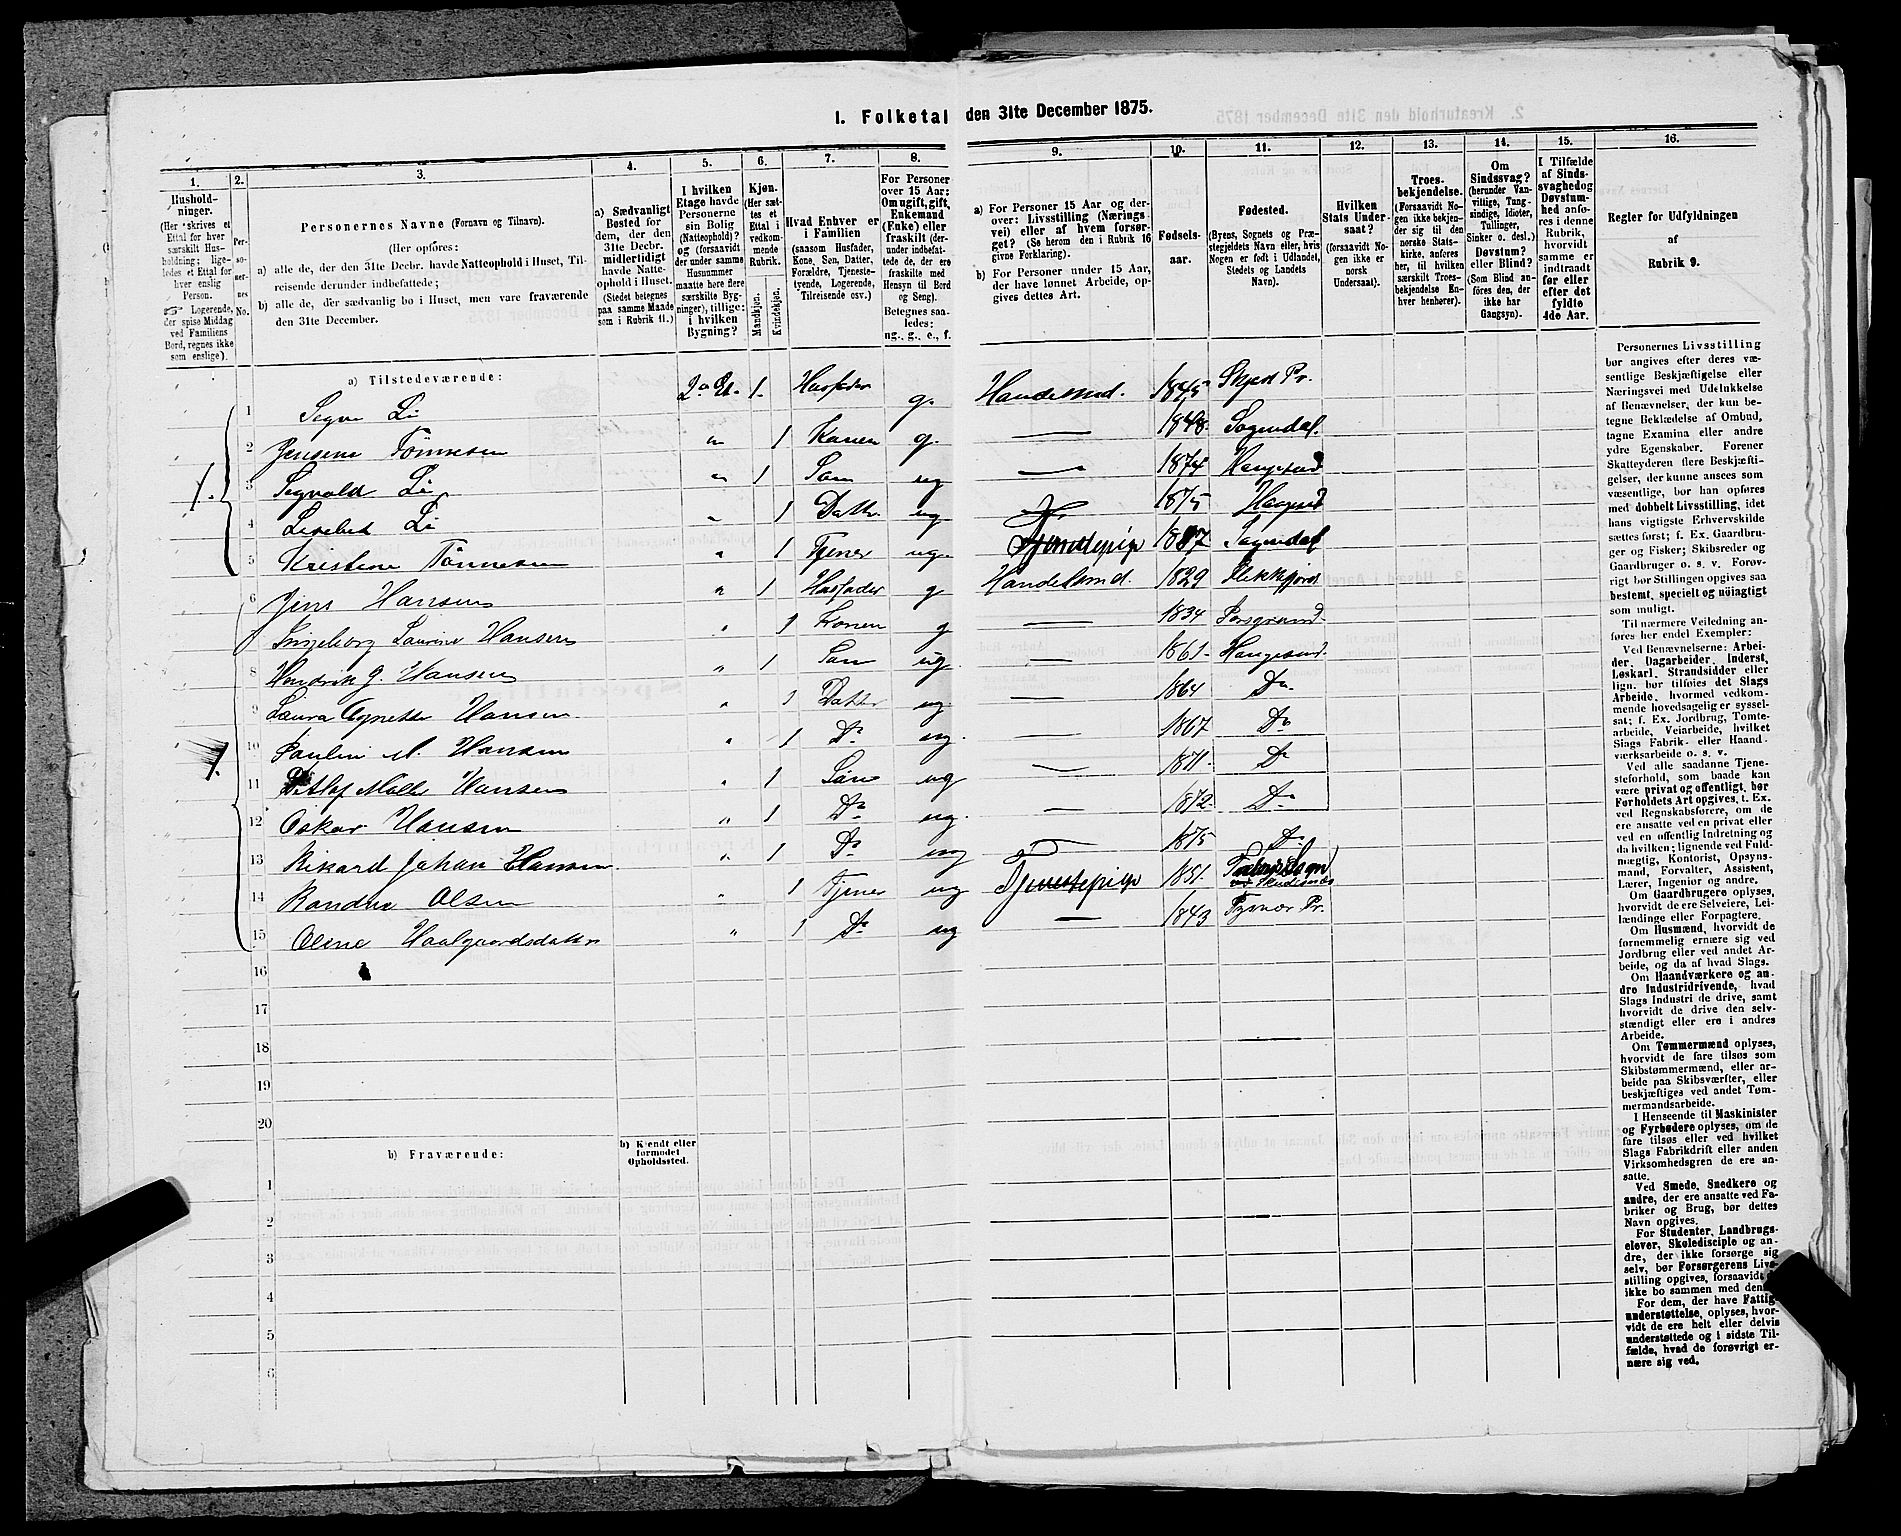 I. Folketal den 31te December 1875.
1.
2.
3.
4.
5.
6.
7.
8.
9.
10.
11.
12.
13.
14.
15.
16.
Hushold-
ninger.
(Her skrives et
Ettal for hver
særskilt Hus-
holdning; lige-
ledes et Ettal for
hver enslig
Person.
☞ Logerende,
der spise Middag
ved Familiens
Bord, regnes ikke
som enslige).
Per-
so-
ner-
nes
No.
Personernes Navne (Fornavn og Tilnavn).
(Her opføres:
a) alle de, der den 31te Decbr. havde Natteophold i Huset, Til-
reisende derunder indbefattede;
b) alle de, der sædvanlig bo i Huset, men vare fraværende
den 31te December.
a) Sædvanligt
Bosted for
dem, der den
31te Decbr.
midlertidigt
havde Natte-
ophold i Huset.
(Stedet betegnes
paa samme Maade
som i Rubrik 11.)
I hvilken
Etage havde
Personerne
sin Bolig
(Natteophold)?
og (forsaavidt
der under samme
Husnummer
maatte høre flere
særskilte Byg-
ninger), tillige:
i hvilken
Bygning?
Kjøn.
(Her sæt-
tes et
Ettal i
vedkom-
mende
Rubrik.
Mandkjøn.
Kvindekjøn.
Hvad Enhver er
i Familien
(saasom Husfader,
Kone, Søn, Datter,
Forældre, Tjeneste-
tyende, Logerende,
Tilreisende osv.)
For Personer
over 15 Aar:
Om ugift, gift,
Enkemand
(Enke) eller
fraskilt (der-
under indbefat-
tede de, der ere
fraskilte med
Hensyn til Bord
og Seng).
Betegnes saa-
ledes:
ug., g., e., f.
a) For Personer 15 Aar og der-
over: Livsstilling (Nærings-
vei) eller af hvem forsør-
get? (Se herom den i Rubrik 16
givne Forklaring).
b) For Personer under 15 Aar,
der have lønnet Arbeide, op-
gives dettes Art.
Fødsels-
aar.
Fødested.
(Byens, Sognets og Præ-
stegjeldets Navn eller, hvis
Nogen er født i Udlandet,
Stedets og Landets
Navn).
Hvilken
Stats Under-
saat?
(forsaavidt No-
gen ikke er
norsk
Undersaat).
Troes-
bekjendelse.
(Forsaavidt No-
gen ikke bekjen-
der sig til den
norske Stats-
kirke, anføres
her, til hvilken
særskilt Troes-
bekjendelse En-
hver henhører).
Om
Sindssvag?
(herunder Van-
vittige, Tung-
sindige, Idioter,
Tullinger,
Sinker o. desl.)
Døvstum?
eller Blind?
(Som Blind an-
føres den, der
ikke har
Gangsyn).
I Tilfælde
af Sinds-
svaghed og
Døvstum-
hed anfø-
res i denne
Rubrik,
hvorvidt
samme er
indtraadt
før eller
efter det
fyldte
4de Aar.
Regler for Udfyldningen
af
Rubrik 9.
a) Tilstedeværende:
1 Segva Li 2n Et. 1. Husfader g. Handelsmd. 1845 Skjold Pr.
2 Jensene Tønnesen „ 1 Konen g. — 1848. Sogndal.
1. 3 Segvald Li „ 1 Søn ug — 1874 Haugesund
4 Lisebet Li „ 1 Datter ug 1875 Haugesund
5 Kristine Tønnesen „ 1 Tjener ug. Tjenestepige 1857 Sogndal
6 Jens Hansen „ 1 Husfader g Handelsmd. 1829 Flekkefjord
Ingeborg Laurine Hansen „ 1 Konen g — 1834 Porsgrund.
8 Hendrik J. Hansen „ 1 Søn ug — 1861. Haugesund.
9 Laura Agnette Hansen „ 1 Datter ug. — 1864 Do.
1. 10 Pauline M. Hansen „ 1 Do ug. — 1867 Do
11 Detlef Møller Hansen „ 1 Søn ug — 1871. Do
12 Oskar Hansen „ 1 Do ug. — 1872. Do
13 Rikard Johan Hansen „ 1 Do ug — 1875 Do
14 Randine Olsen „ 1 Tjener ug Tjenestepige 1851. Skudesnæs
15 Oline Haalgaardsdatter „ 1 Do ug — 1843 Tysvær Pr.
16
17
18
19
20
b) Fraværende:
b) Kjendt eller
formodet
Opholdssted.
1
2
3
4
5
6
Personernes Livsstilling
bør angives efter deres væ-
sentlige Beskjæftigelse eller
Næringsvei med Udelukkelse
af Benævnelser, der kun be-
tegne Beklædelse af Ombud,
tagne Examina eller andre
ydre Egenskaber. Forener
Skatteyderen flere Beskjæfti-
gelser, der kunne ansees som
væsentlige, bør han opføres
med dobbelt Livsstilling, idet
hans vigtigste Erhvervskilde
sættes først; f. Ex. Gaardbru-
ger og Fisker; Skibsreder og
Gaardbruger o. s. v. Forøv-
rigt bør Stillingen opgives saa
bestemt, specielt og nøiagtigt
som muligt.
Til nærmere Veiledning an-
føres her endel Exempler:
Ved Benævnelserne: Arbei-
der, Dagarbeider, Inderst,
Løskarl, Strandsidder eller
lign. bør tilføies det Slags
Arbeide, hvormed vedkom-
mende hovedsagelig er syssel-
sat; f. Ex. Jordbrug, Tomte-
arbeide, Veiarbeide, hvilket
Slags Fabrik- eller Haand-
værksarbeide o. s. v.
Ved alle saadanne Tjene-
steforhold, som baade kan
være privat og offentligt, bør
Forholdets Art opgives, t. Ex.
ved Regnskabsførere, om de
ere ansatte ved en privat eller
ved en offentlig Indretning og
da hvilken; lignende ved Fuld-
mægtig, Kontorist, Opsyns-
mand, Forvalter, Assistent,
Lærer, Ingeniør og andre.
Om Gaardbrugere oplyses,
hvorvidt de ere Selveiere, Lei-
lændinge eller Forpagtere.
Om Husmænd, hvorvidt de
fornemmelig ernære sig ved
Jordbrug eller ved andet Ar-
beide, og da af hvad Slags.
Om Haandværkere og an-
dre Industridrivende, hvad
Slags Industri de drive, samt
hvorvidt de drive den selv-
stændigt eller ere i andres
Arbeide.
Om Tømmermænd oplyses,
hvorvidt de fare tilsøs som
Skibstømmermænd, eller ar-
beide paa Skibsværfter, eller
beskjæftiges ved andet Tøm-
mermandsarbeide.
I Henseende til Maskinister
og Fyrbødere oplyses, om de
fare tilsøs eller ved hvilket
Slags Fabrikdrift eller anden
Virksomhedsgren de ere an-
satte.
Ved Smede, Snedkere og
andre, der ere ansatte ved Fa-
briker og Brug, bør dettes
Navn opgives.
For Studenter, Landbrugs-
elever, Skoledisciple og an-
dre, der ikke forsørge sig
selv, bør Forsørgerens Livs-
stilling opgives, forsaavidt
ikke bo sammen med den
For dem, der have Fattig-
understøttelse, oplyses, hvor-
vidt de ere helt eller delvis
understøttede og i sidste Til-
fælde, hvad de forøvrigt er-
nære sig ved.